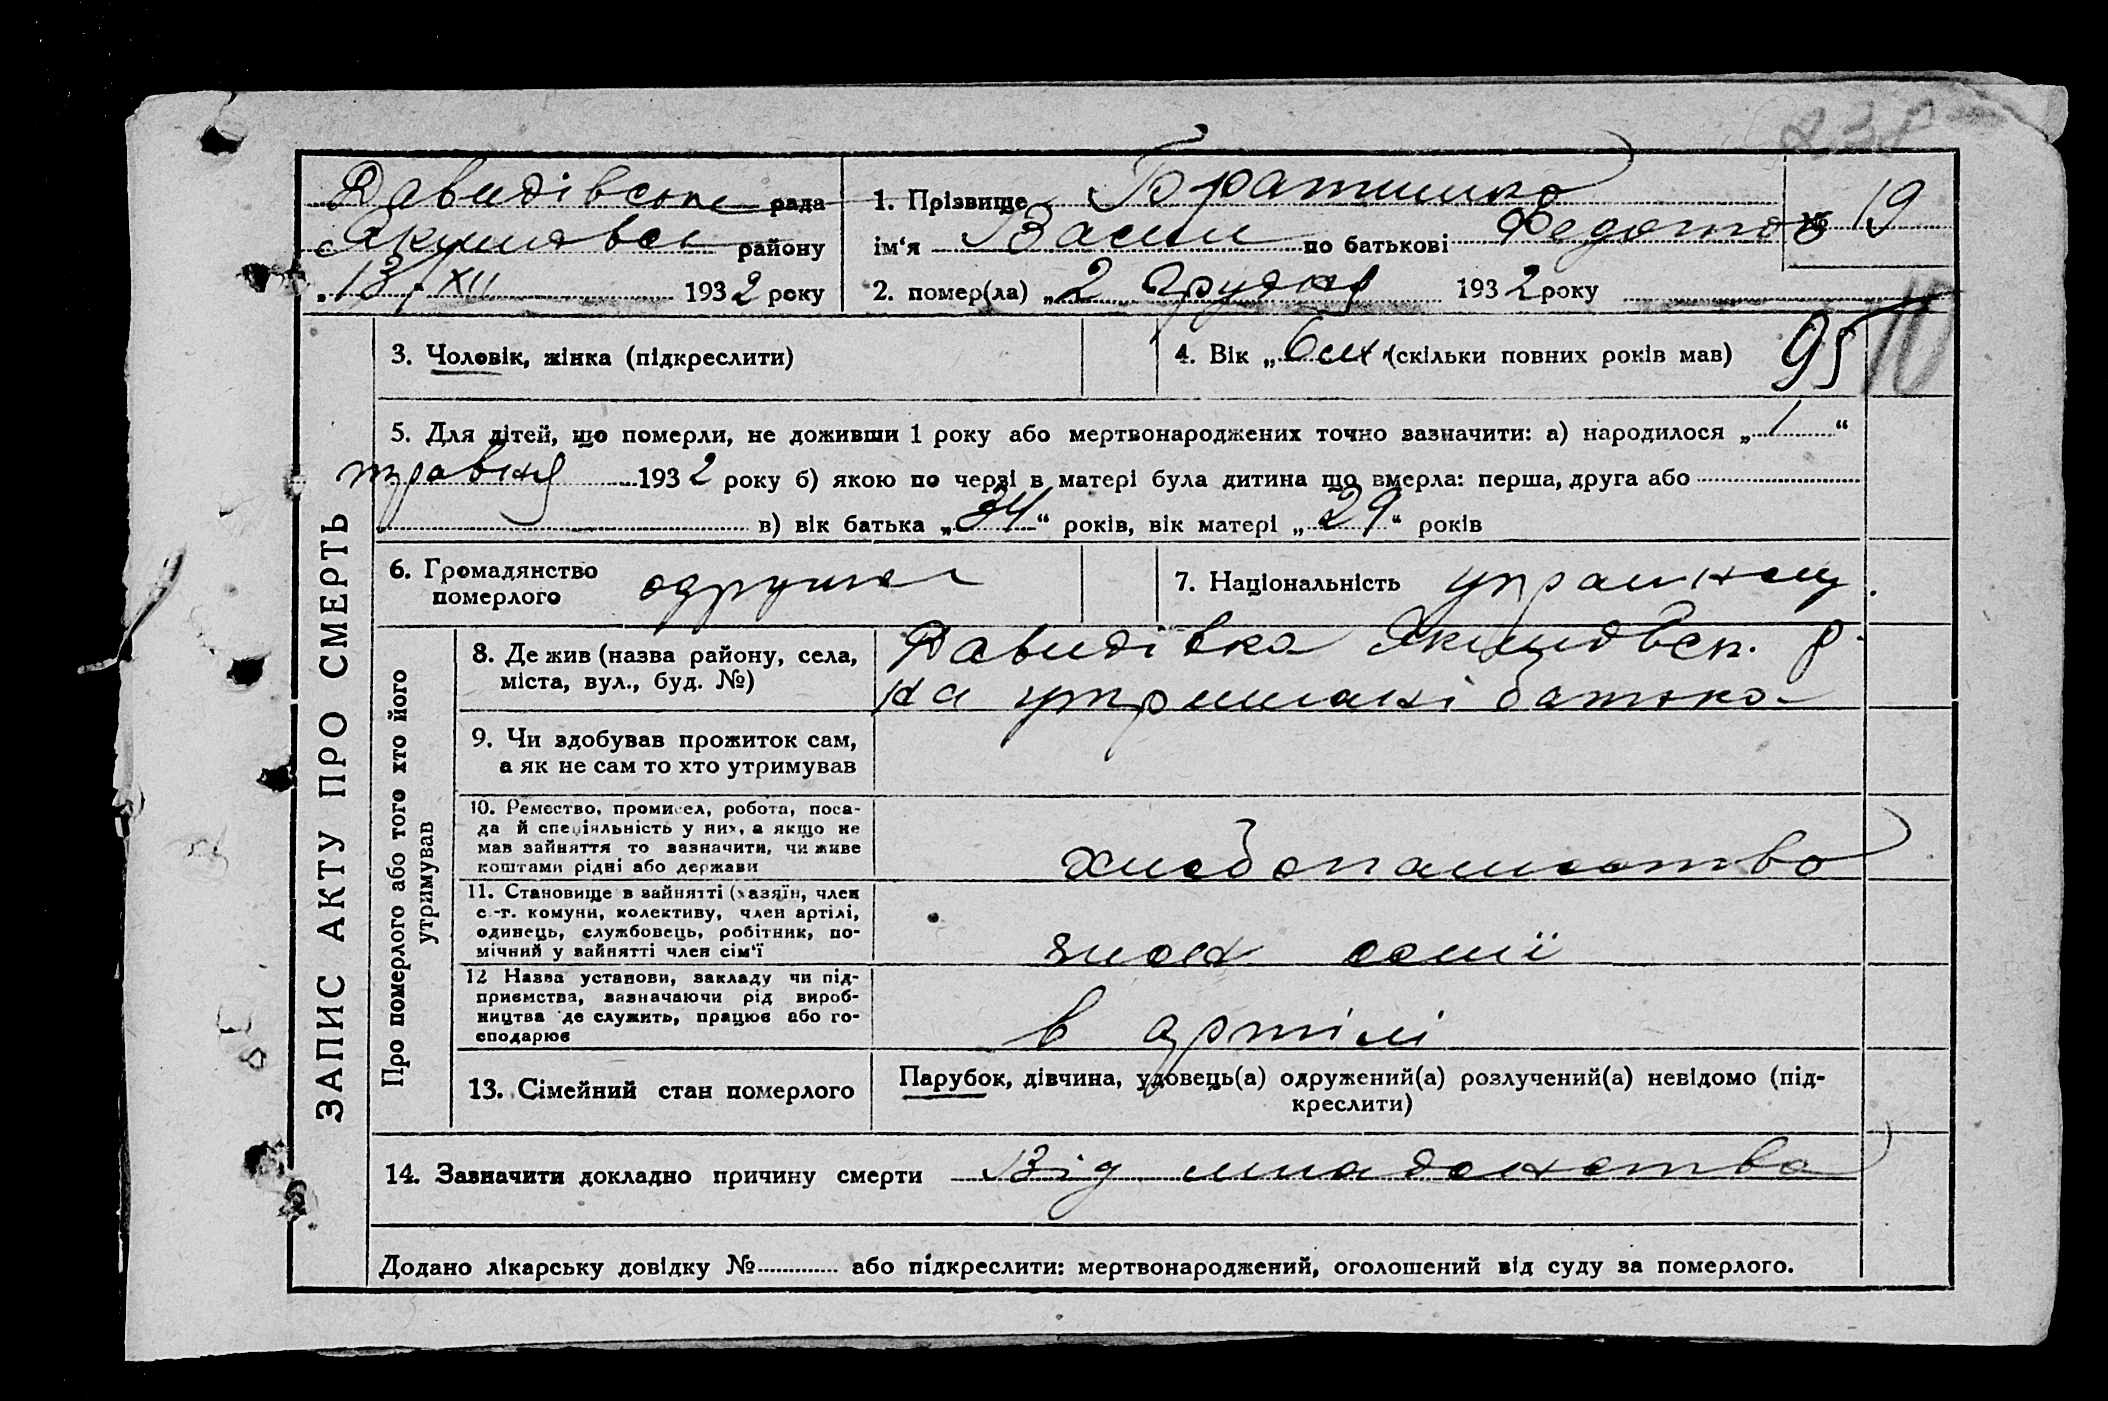 Давидівська рада
Якимівськ району
„13/XII 1932 року
1. Прізвище Братишко
ім‘я Васил по батькові Федотов № 19
2. помер(ла) „2 грудня 1932 року
ЗАПИС АКТУ ПРО СМЕРТЬ
3. Чоловік, жінка (підкреслити)
4. Вік „6 м“ (скільки повних років мав) 95 10
5. Для дітей, що померли, не доживши 1 року або мертвонароджених точно зазначити: а) народилося „1“
травня 1932 року б) якою по черзі в матері була дитина що вмерла: перша, друга або
в) вік батька „34“ років, вік матері „29“ років
6. Громадянство
померлого
7. Національність україн
Про померлого або того хто його
утримував
8. Де жив (назва району, села,
міста, вул., буд. №)
Давидівка Якимівськ. р
на утримані батька
9. Чи здобував прожиток сам,
а як не сам то хто утримував
10. Ремество, промисел, робота, поса-
да й спеціяльність у них, а якщо не
мав зайняття то зазначити, чи живе
коштами рідні або держави
хлебопашество
11. Становище в зайнятті (хазяїн, член
с.-г. комуни, колективу, член артілі,
одинець, службовець, робітник, по-
мічний у зайнятті член сім‘ї
член семї
12 Назва установи, закладу чи під-
приємства, зазначаючи рід вироб-
ництва де служить, працює або го-
сподарює
в артілі
13. Сімейний стан померлого
Парубок, дівчина, удовець(а) одружений(а) розлучений(а) невідомо (під-
креслити)
14. Зазначити докладно причину смерти Від младенства
Додано лікарську довідку № або підкреслити: мертвонароджений, оголошений від суду за померлого.